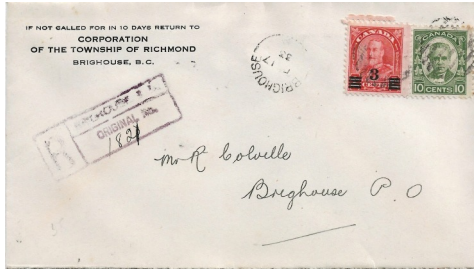 IF NOT CALLED FOR IN 10 DAYS RETURN TO
CORPORATION
OF THE TOWNSHIP OF RICHMOND
BRIGHOUSE, B.C.
BRIGHOUSE
17
CANADA
3
CANADA
10 CENTS 10
R
ORIGINAL No.
182
Mr R Colville
Brighouse P.O